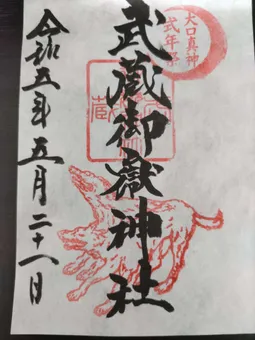 大口真神
式年祭
武蔵御嶽神社
令和五年五月二十一日